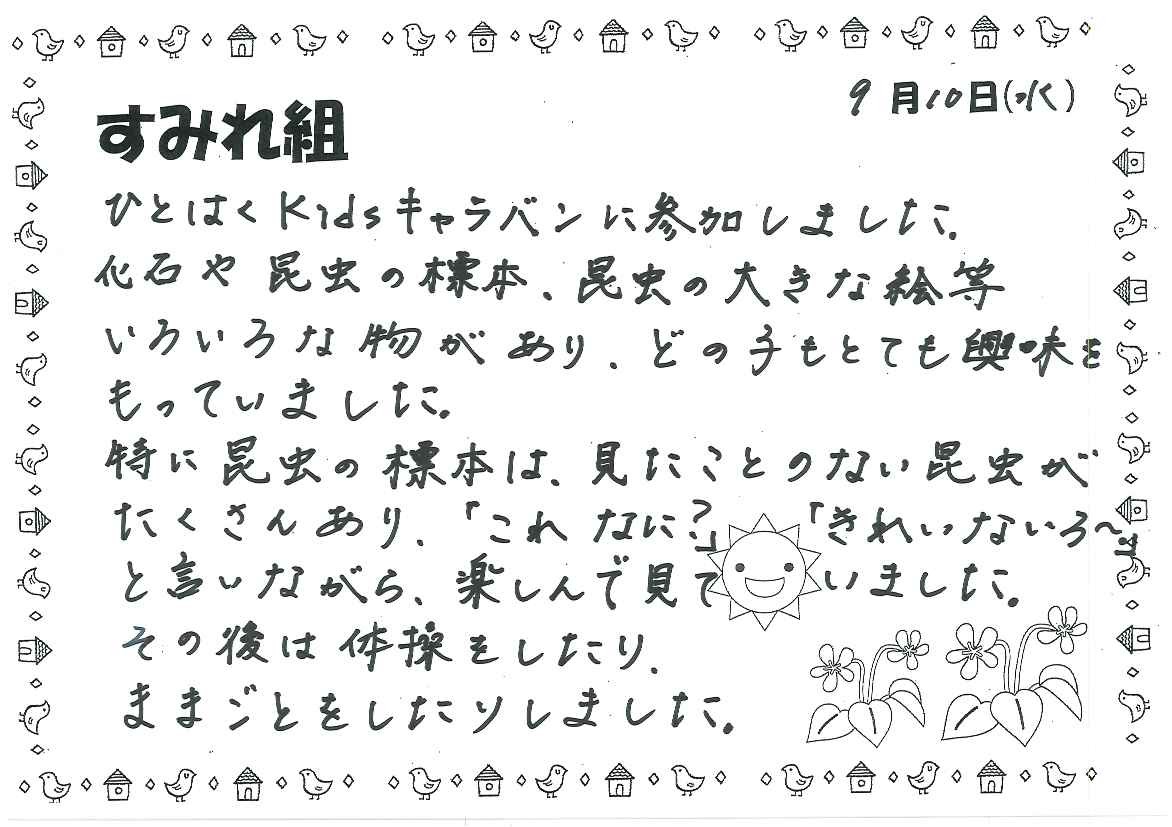 9月10日(水)
すみれ組
ひとはくKidsキャラバンに参加しました。
化石や昆虫の標本、昆虫の大きな絵等
いろいろな物があり、どの子もとても興味を
もっていました。
特に昆虫の標本は、見たことのない昆虫が
たくさんあり、「これなに?」「きれいないろ〜!!」
と言いながら、楽しんで見ていました。
その後は体操をしたり、
ままごとをしたりしました。